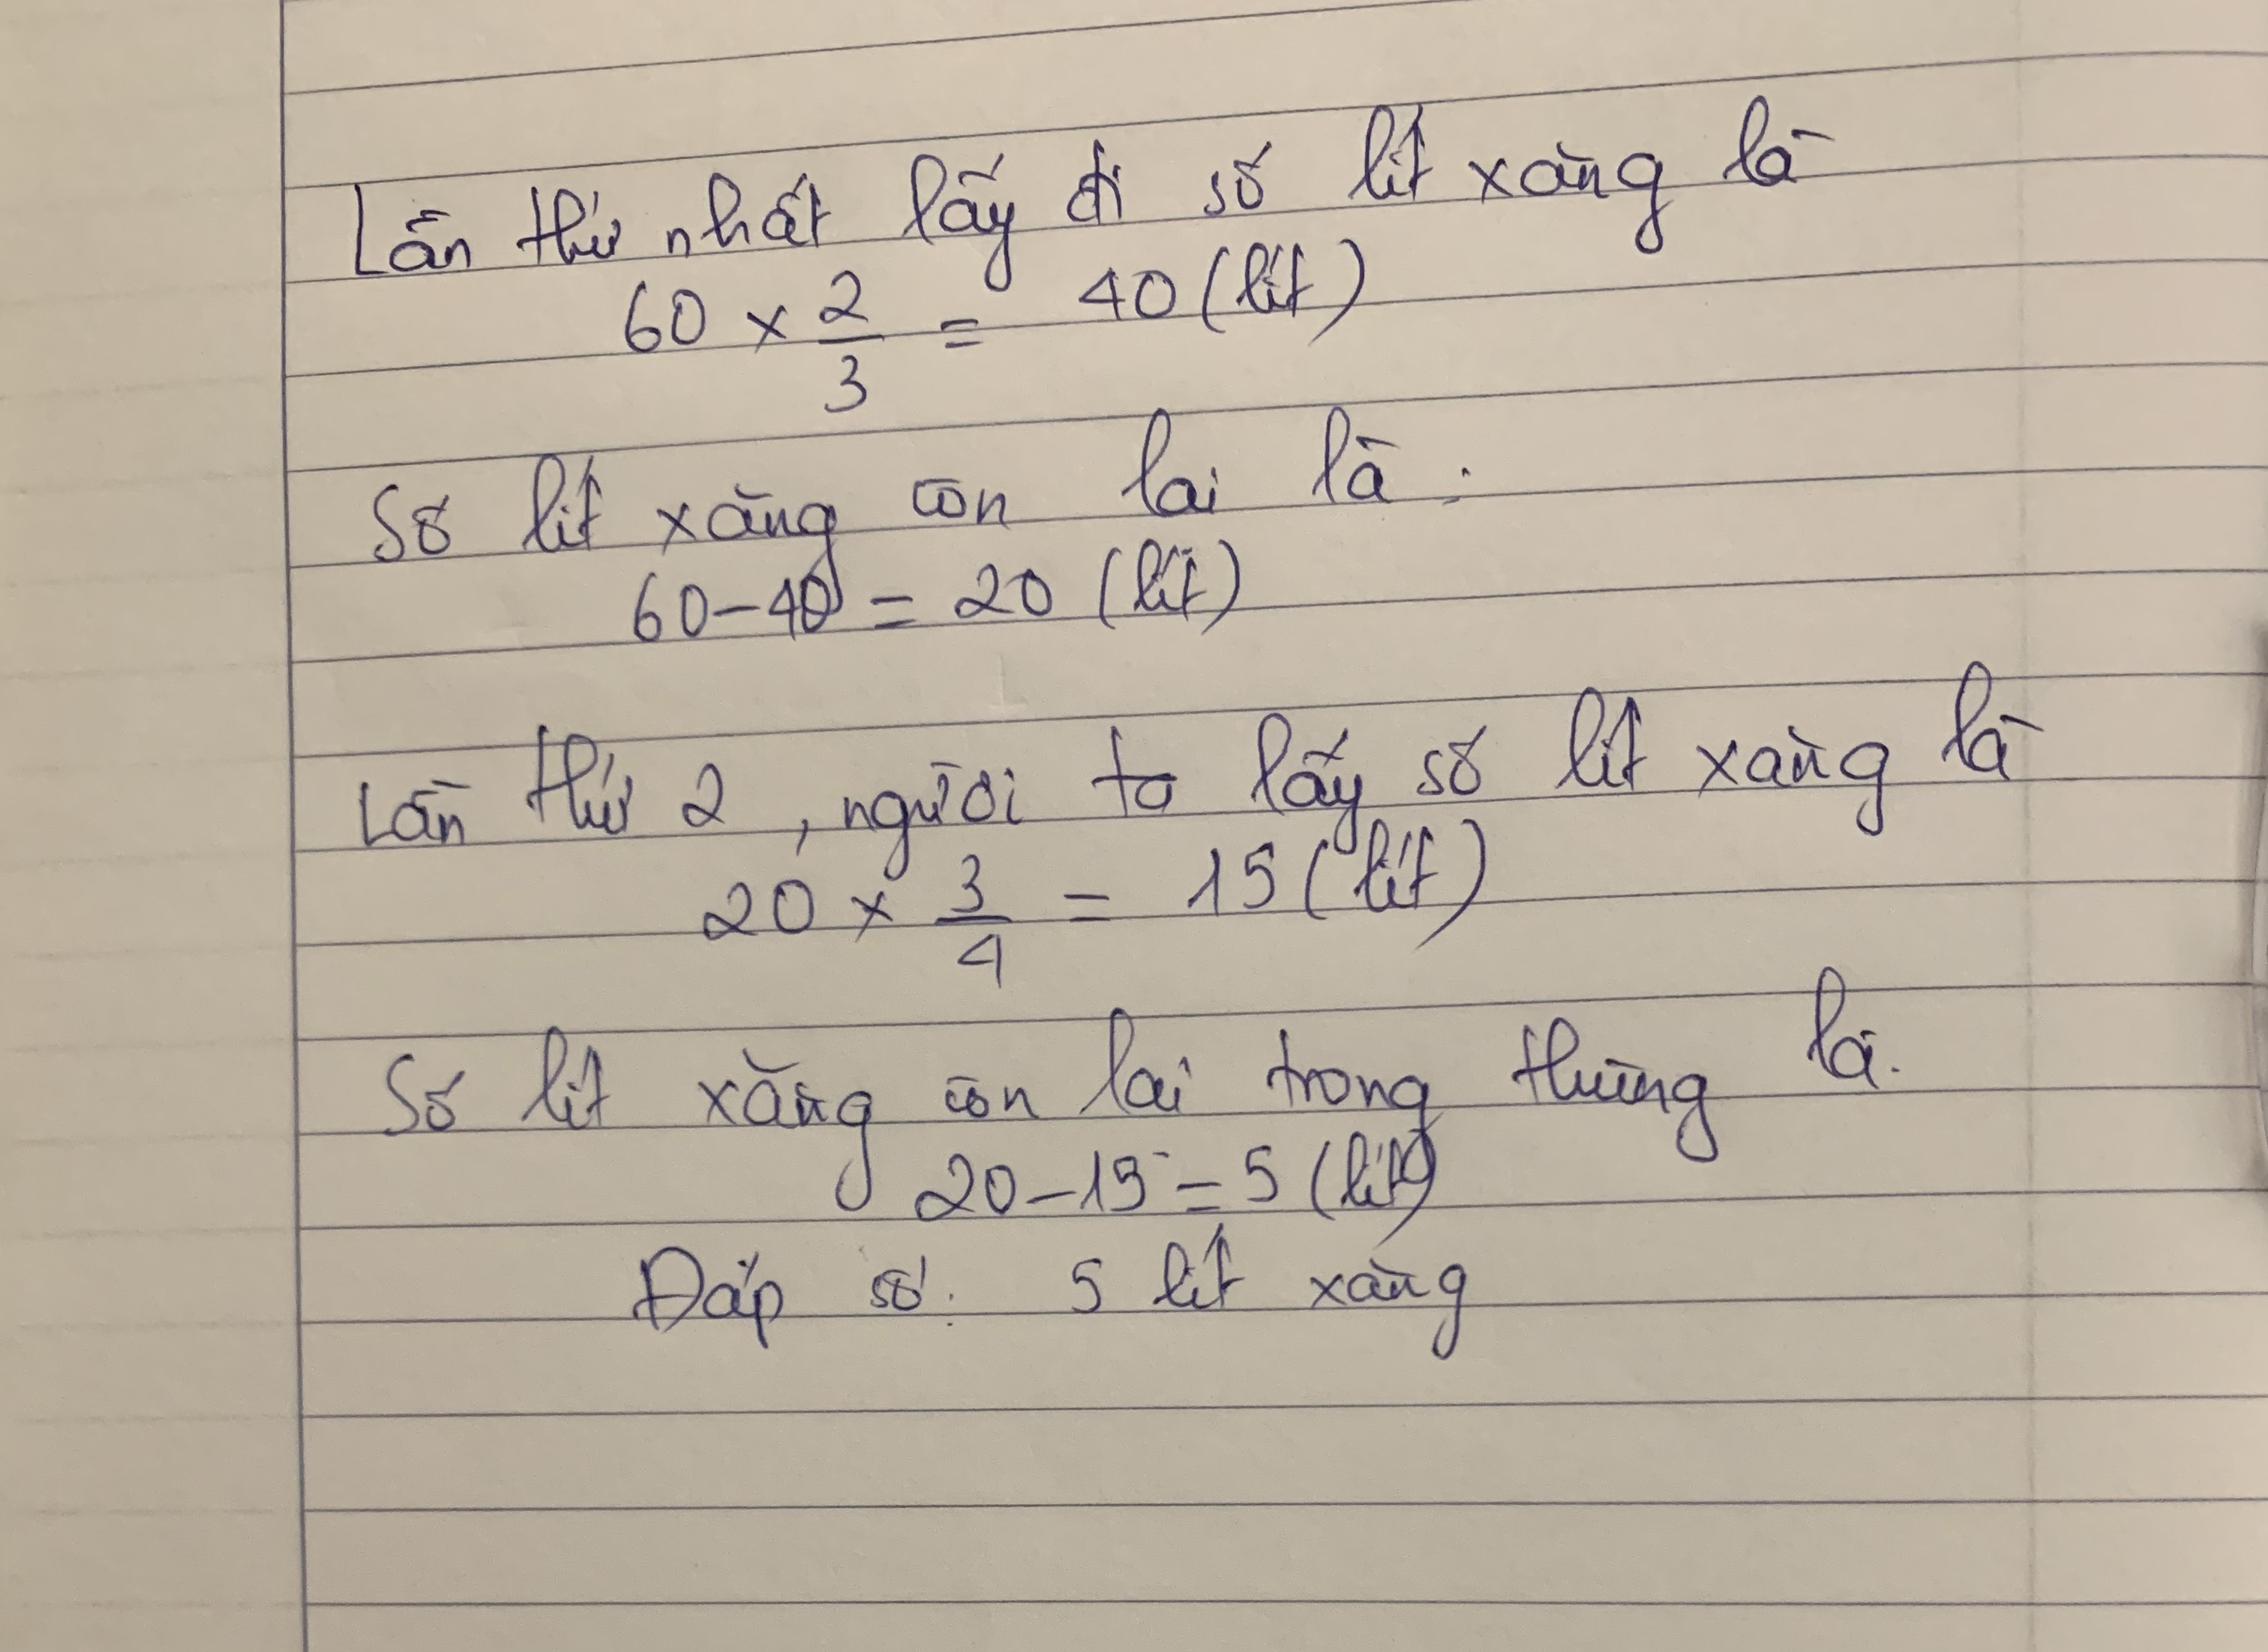 Lần thứ nhất lấy đi số lít xăng là
60 × 2/3 = 40 (lít)
Số lít xăng còn lại là:
60 - 40 = 20 (lít)
Lần thứ 2, người ta lấy số lít xăng là
20 × 3/4 = 15 (lít)
Số lít xăng còn lại trong thùng là.
20 - 15 = 5 (lít)
Đáp số: 5 lít xăng